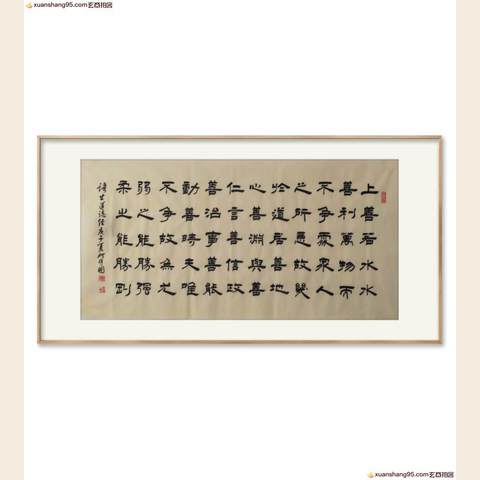 xuanshang95.com玄尚拍圖
上善若水水
善利萬物而
不爭處衆人
之所惡故幾
於道居善地
心善淵與善
仁言善信政
善治事善能
動善時夫唯
不爭故無尤
弱之能勝强
柔之能勝剛
道德经庚子夏
xuanshang95.com玄尚拍圖